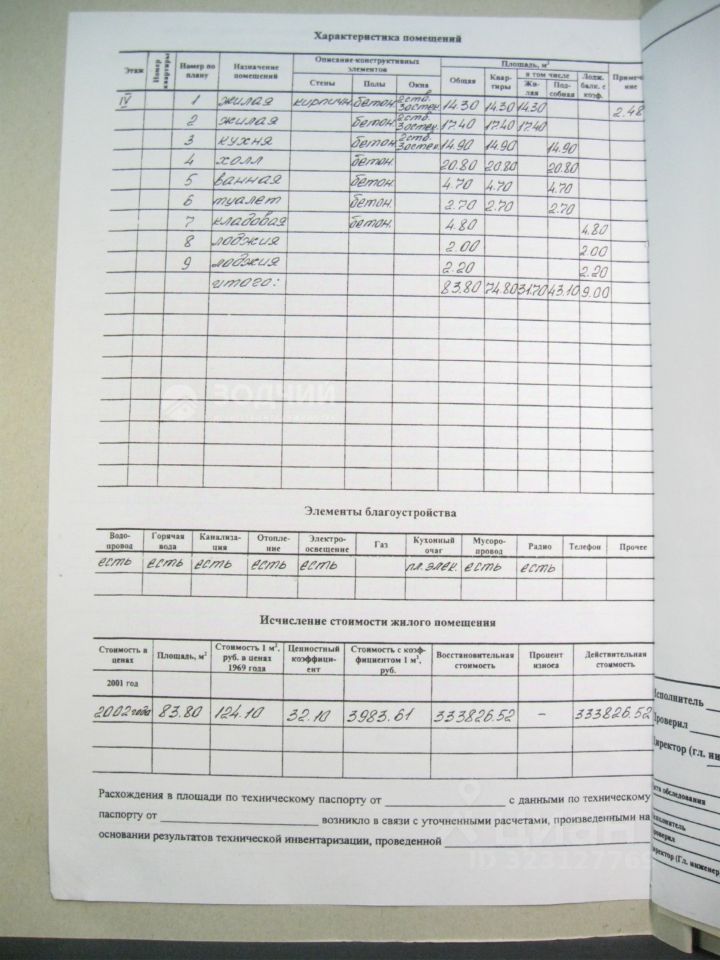 Характеристика помещений
Этаж Номер квартиры Номер по плану Назначение помещений Описание конструктивных элементов Площадь, м² Примечание
Стены Полы Окна Общая Квартиры в том числе Лодж. балк. с коэф.
Жилая Подсобная
IV 1 жилая кирпичн. бетон. 2 ств. 3 остек. 14.30 14.30 14.30 2.48
2 жилая бетон. 2 ств. 3 остек. 17.40 17.40 17.40
3 кухня бетон. 2 ств. 3 остек. 14.90 14.90 14.90
4 холл бетон. 20.80 20.80 20.80
5 ванная бетон. 4.70 4.70 4.70
6 туалет бетон. 2.70 2.70 2.70
7 кладовая бетон. 4.80 4.80
8 лоджия 2.00 2.00
9 лоджия 2.20 2.20
итого: 83.80 74.80 31.70 43.10 9.00
ЗОДЧИЙ
Элементы благоустройства
Водопровод Горячая вода Канализация Отопление Электроосвещение Газ Кухонный очаг Мусоропровод Радио Телефон Прочее
есть есть есть есть есть пл. элек. есть есть
Исчисление стоимости жилого помещения
Стоимость в ценах Площадь, м² Стоимость 1 м², руб. в ценах 1969 года Ценностный коэффициент Стоимость с коэффициентом 1 м², руб. Восстановительная стоимость Процент износа Действительная стоимость
2001 год
2002 года 83.80 124.10 32.10 3983.61 333826.52 – 333826.52
Расхождения в площади по техническому паспорту от ____ с данными по техническому
паспорту от ____ возникло в связи с уточненными расчетами, произведенными на
основании результатов технической инвентаризации, проведенной ____
циан
Исполнитель
Проверил
Директор (гл. инж
обследования
Исполнитель
Проверил
Директор (Гл. инженер